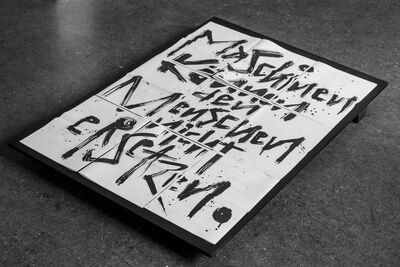 Maschinen
können
den
Menschen
nicht
ersetzen.